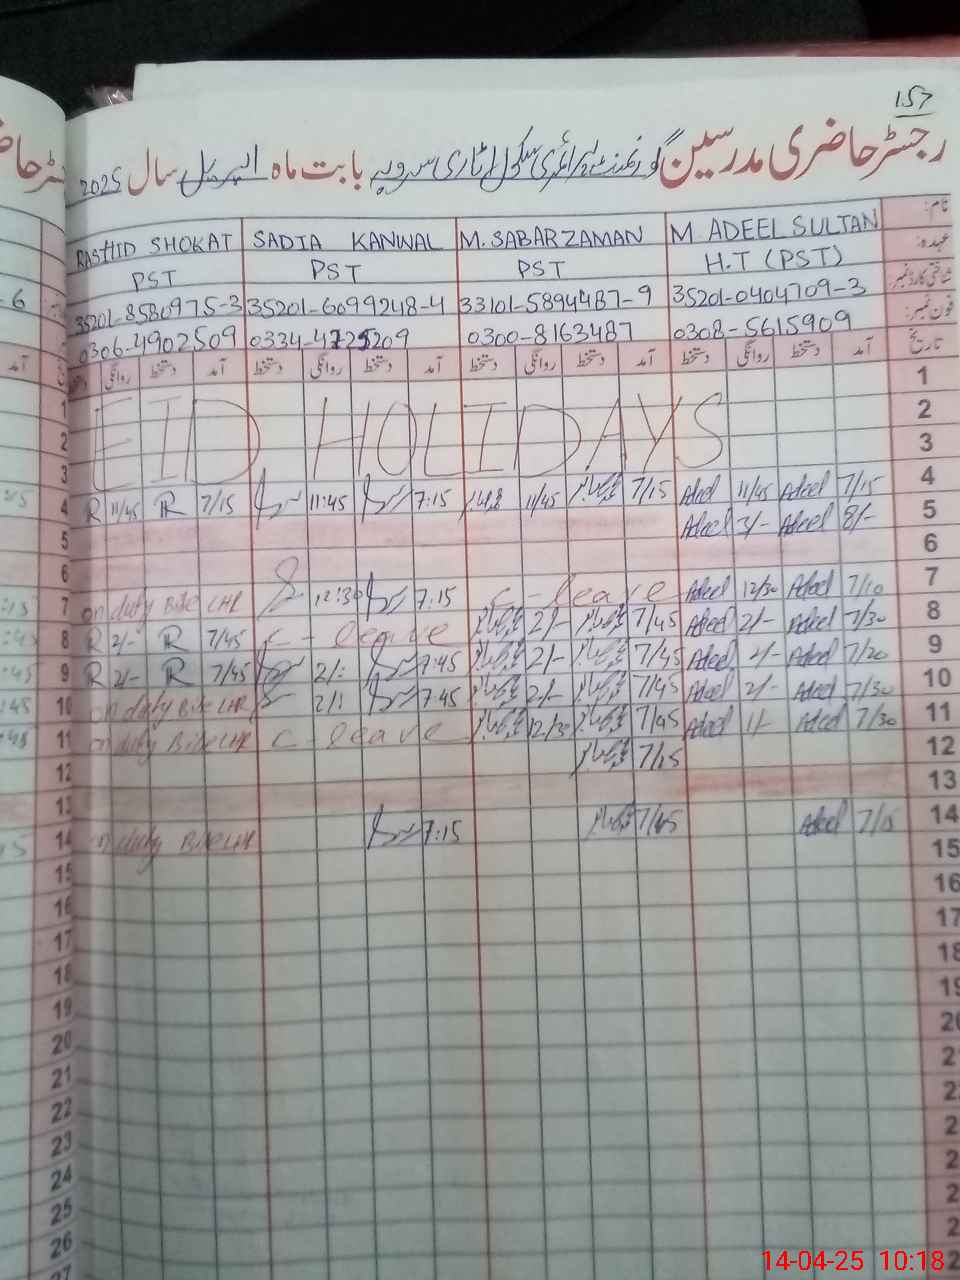 157
رجسٹر حاضری مدرسین گورنمنٹ پرائمری سکول اٹاری سروبہ بابت ماہ اپریل سال 2025
RASHID SHOKAT SADIA KANWAL M. SABAR ZAMAN M ADEEL SULTAN نام:
PST PST PST H.T (PST) عہدہ:
35201-8580975-3 35201-6099248-4 33101-5894487-9 35201-0404709-3 شناختی کارڈ نمبر:
0306-4902509 0334-4725209 0300-8163487 0308-5615909 فون نمبر:
دستخط روانگی دستخط آمد دستخط روانگی دستخط آمد دستخط روانگی دستخط آمد دستخط روانگی دستخط آمد تاریخ
1 1
2 EID HOLIDAYS 2
3 3
4 R 11/45 R 7/15 11:45 7:15 11/45 7/15 Adeel 11/45 Adeel 7/15 4
5 Adeel 3/- Adeel 8/- 5
6 6
7 on duty Bise LHR 12:30 7:15 c - leave Adeel 12/30 Adeel 7/10 7
8 R 2/- R 7/45 c - leave 2/- 7/45 Adeel 2/- Adeel 7/30 8
9 R 2/- R 7/45 2/: 7:45 2/- 7/45 Adeel 2/- Adeel 7/20 9
10 on duty Bise LHR 2/: 7:45 2/- 7/45 Adeel 2/- Adeel 7/30 10
11 on duty Bise LHR c leave 12/30 7/45 Adeel Adeel 7/30 11
12 7/15 12
13 13
14 on duty Bise LHR 7:15 7/45 Adeel 7/15 14
15 15
16 16
17 17
18 18
19 19
20 20
21
22
23
24
25
26
27
14-04-25 10:18